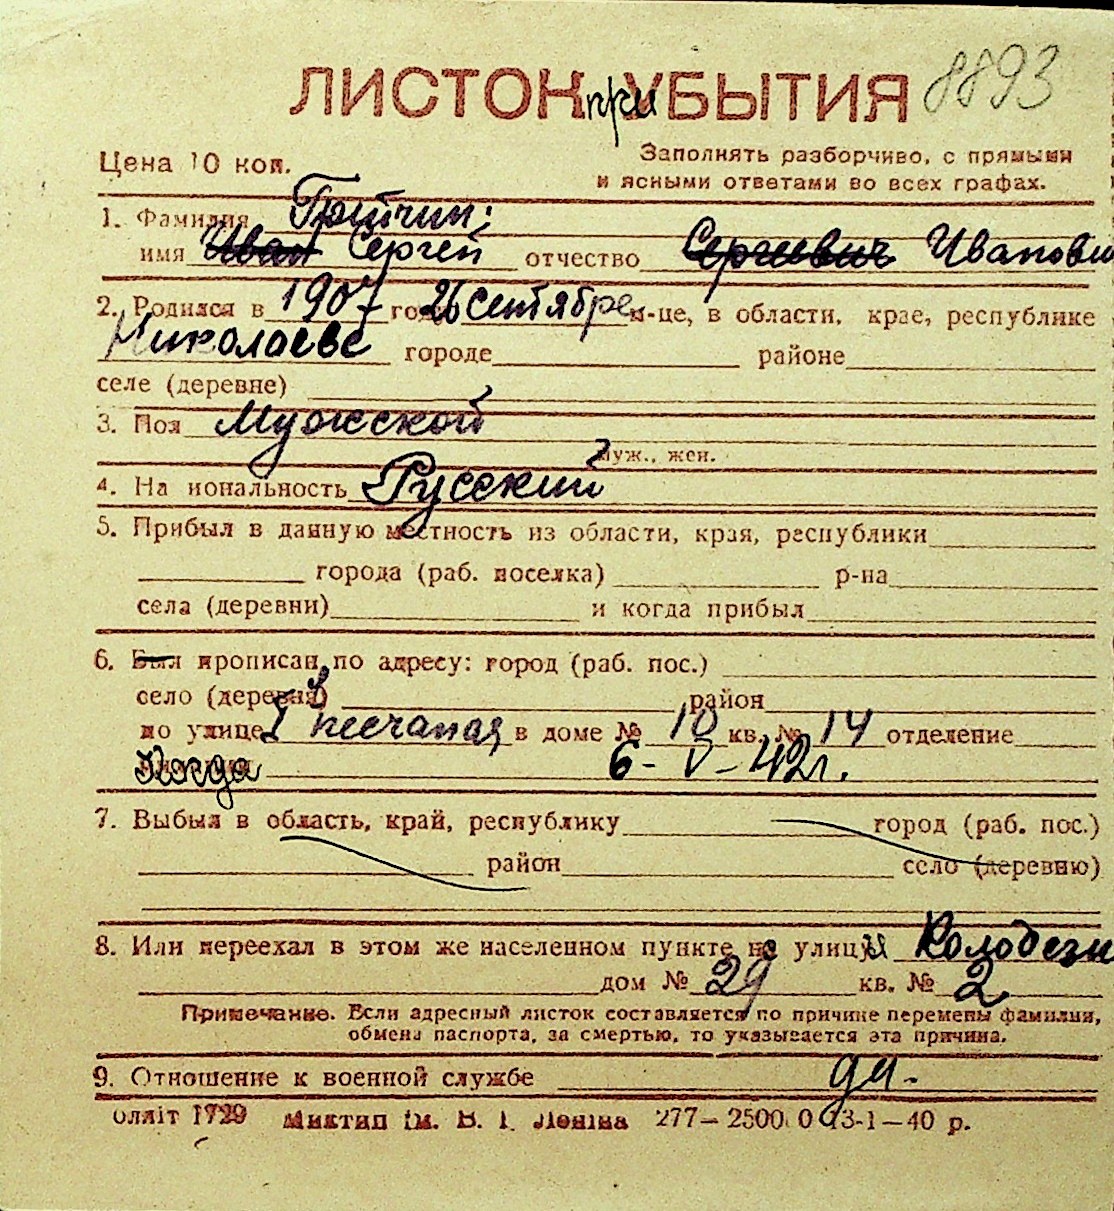 ЛИСТОК при УБЫТИЯ 8893
Цена 10 коп.
Заполнять разборчиво, с прямыми
и ясными ответами во всех графах.
1. Фамилия
имя Иван Сергей отчество Сергиевич Иванови
2. Родился в 1907 году 26 сентябре м-це, в области, крае, республике
Николаеве городе районе
селе (деревне)
3. Пол Мужской
муж., жен.
4. На иональность Русский
5. Прибыл в данную местность из области, края, республики
города (раб. поселка) р-на
села (деревни) и когда прибыл
6. Был прописан по адресу: город (раб. пос.)
село (деревня) район
по улице песчаная в доме № 10 кв. № 14 отделение
Когда 6-V-42г.
7. Выбыл в область, край, республику город (раб. пос.)
район село (деревню)
8. Или переехал в этом же населенном пункте на улицу Колодезн
дом № 29 кв. № 2
Примечание. Если адресный листок составляется по причине перемены фамилии,
обмена паспорта, за смертью, то указывается эта причина.
9. Отношение к военной службе да.
олліт 1729 Миктип ім. В. І. Леніна 277—2500 0 13-1—40 р.